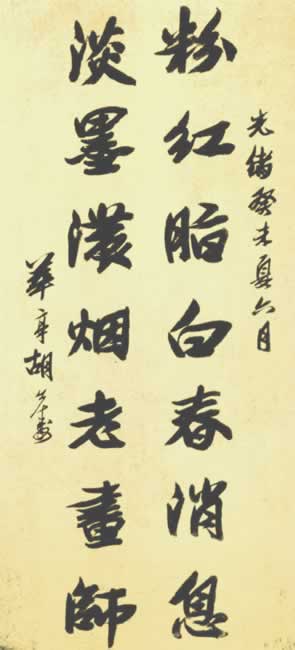 光緒癸未夏六月
粉紅脂白春消息
淡墨濃烟老畫師
華亭胡公壽